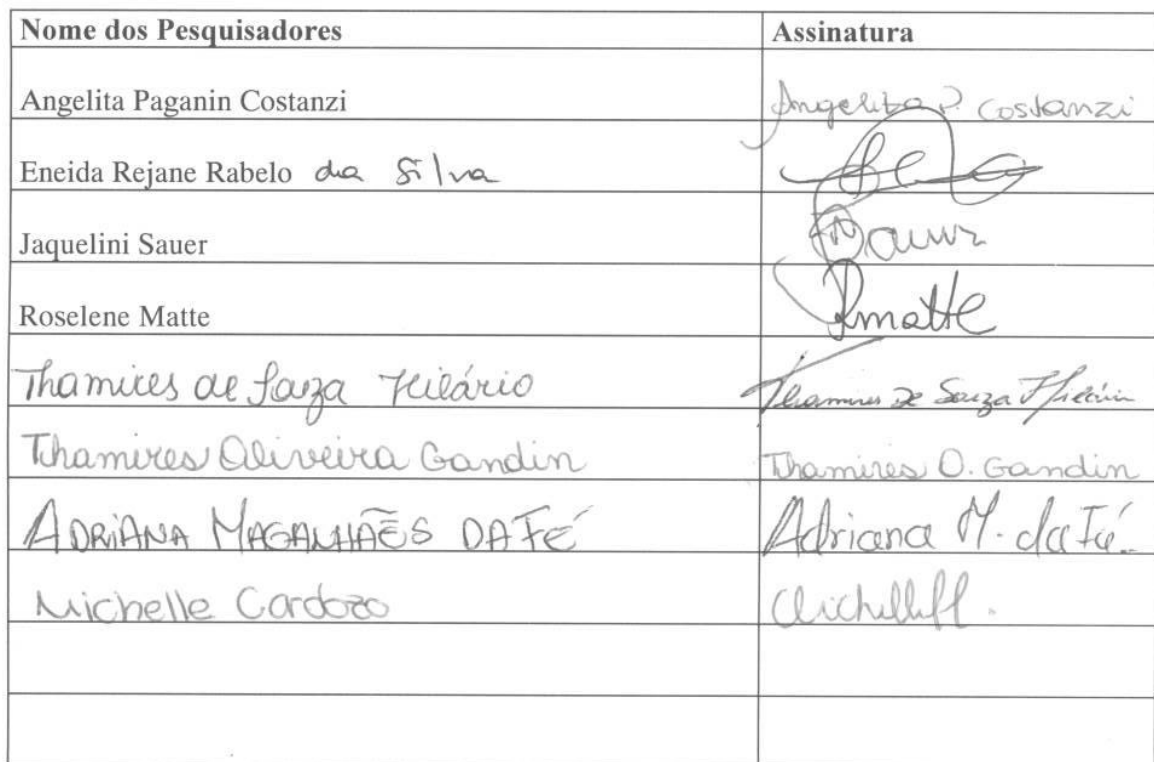 Nome dos Pesquisadores Assinatura
Angelita Paganin Costanzi Angelita P. Costanzi
Eneida Rejane Rabelo da Silva
Jaquelini Sauer Sauer
Roselene Matte Rmatte
Thamires de Souza Hilário Thamires De Souza Hilário
Thamires Oliveira Gandin Thamires O. Gandin
ADRIANA MAGALHÃES DA FÉ Adriana M. da Fé.
Michelle Cardozo